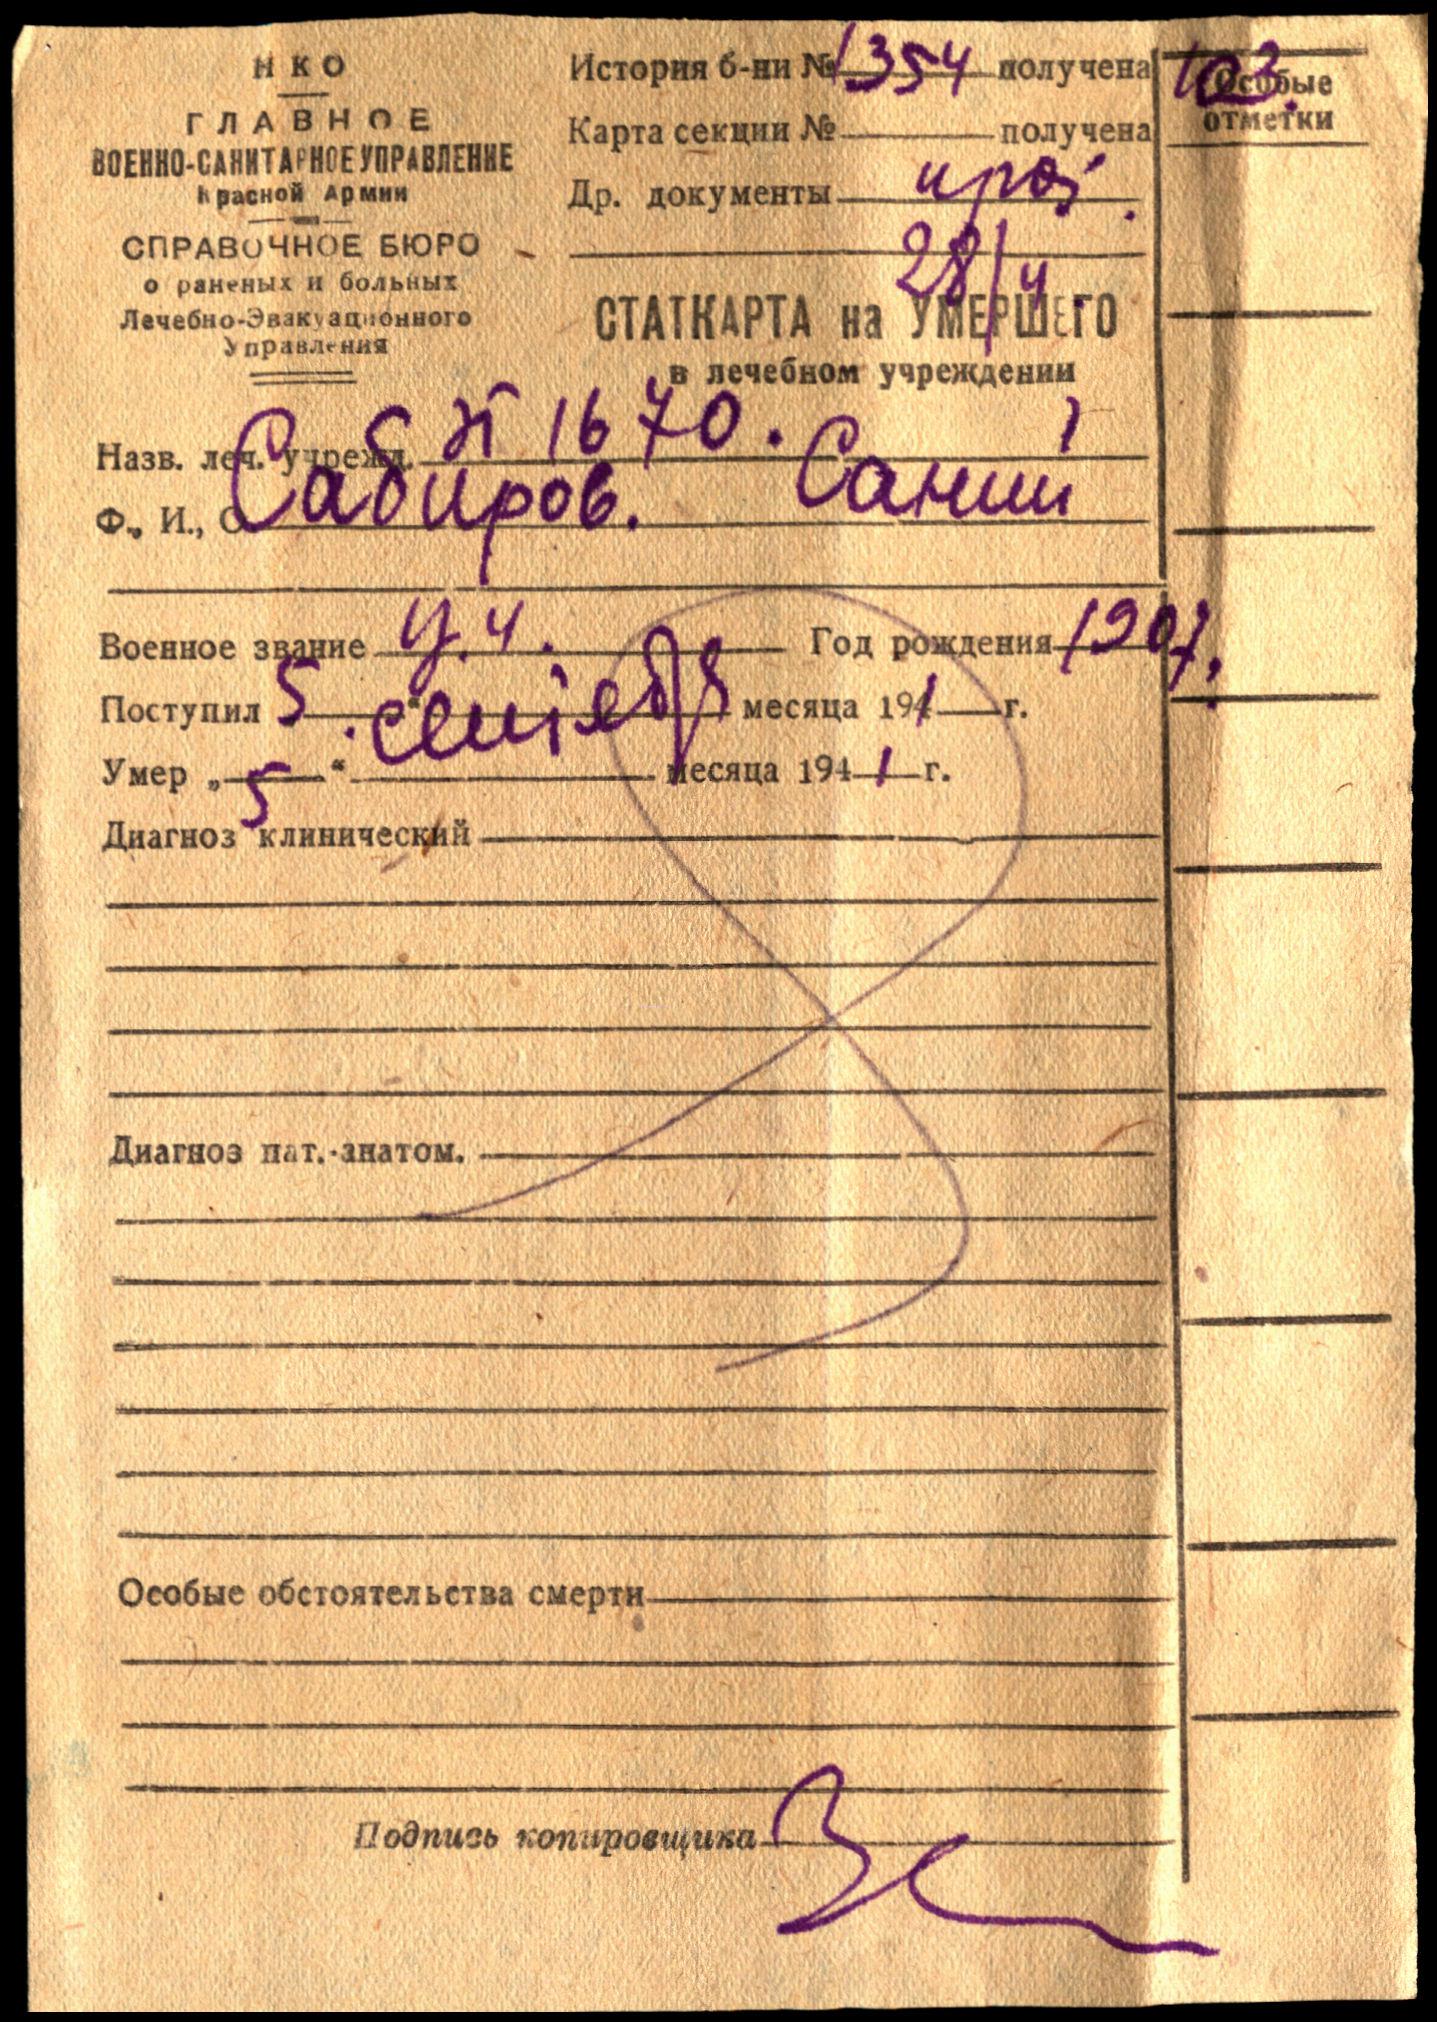 НКО
ГЛАВНОЕ
ВОЕННО-САНИТАРНОЕ УПРАВЛЕНИЕ
Красной Армии
СПРАВОЧНОЕ БЮРО
о раненых и больных
Лечебно-Эвакуационного
Управления
История б-ни № 1354 получена
Карта секции № получена
Др. документы
28/4
Особые
отметки
103.
СТАТКАРТА на УМЕРШЕГО
в лечебном учреждении
Назв. леч. учрежд. 1670.
Ф., И., О. Сабиров. Сании
Военное звание Год рождения 1907.
Поступил 5 " сентября месяца 1941 г.
Умер „ 5 “ месяца 1941 г.
Диагноз клинический
Диагноз пат.-анатом.
Особые обстоятельства смерти
Подпись копировщика